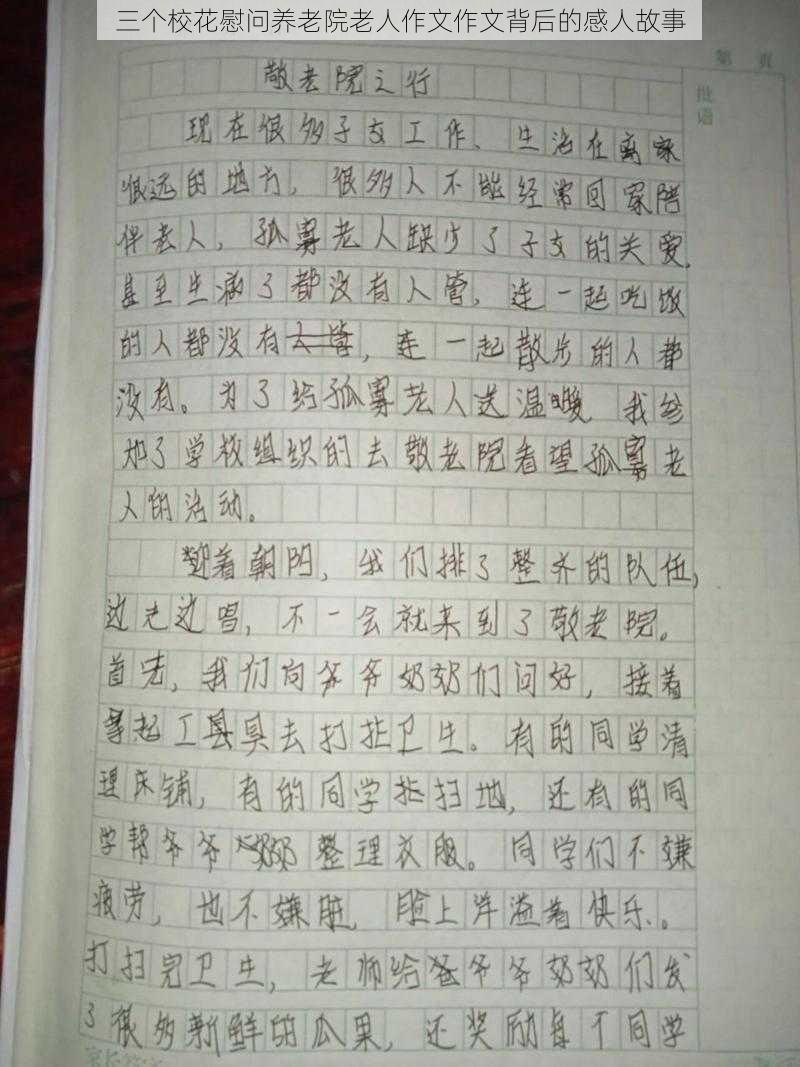 三个校花慰问养老院老人作文作文背后的感人故事
第 页
批语
敬老院之行
现在很多子女工作、生活在离家
很远的地方，很多人不能经常回家陪
伴老人，孤寡老人缺少了子女的关爱，
甚至生病了都没有人管，连一起吃饭
的人都没有人管，连一起散步的人都
没有。为了给孤寡老人送温暖，我参
加了学校组织的去敬老院看望孤寡老
人的活动。
迎着朝阳，我们排了整齐的队伍，
边走边唱，不一会就来到了敬老院。
首先，我们向爷爷奶奶们问好，接着
拿起工具去打扫卫生。有的同学清
理床铺，有的同学拖扫地，还有的同
学帮爷爷奶奶整理衣服。同学们不嫌
疲劳，也不嫌脏，脸上洋溢着快乐。
打扫完卫生，老师给爷爷奶奶们发
了很多新鲜的瓜果，还奖励每个同学